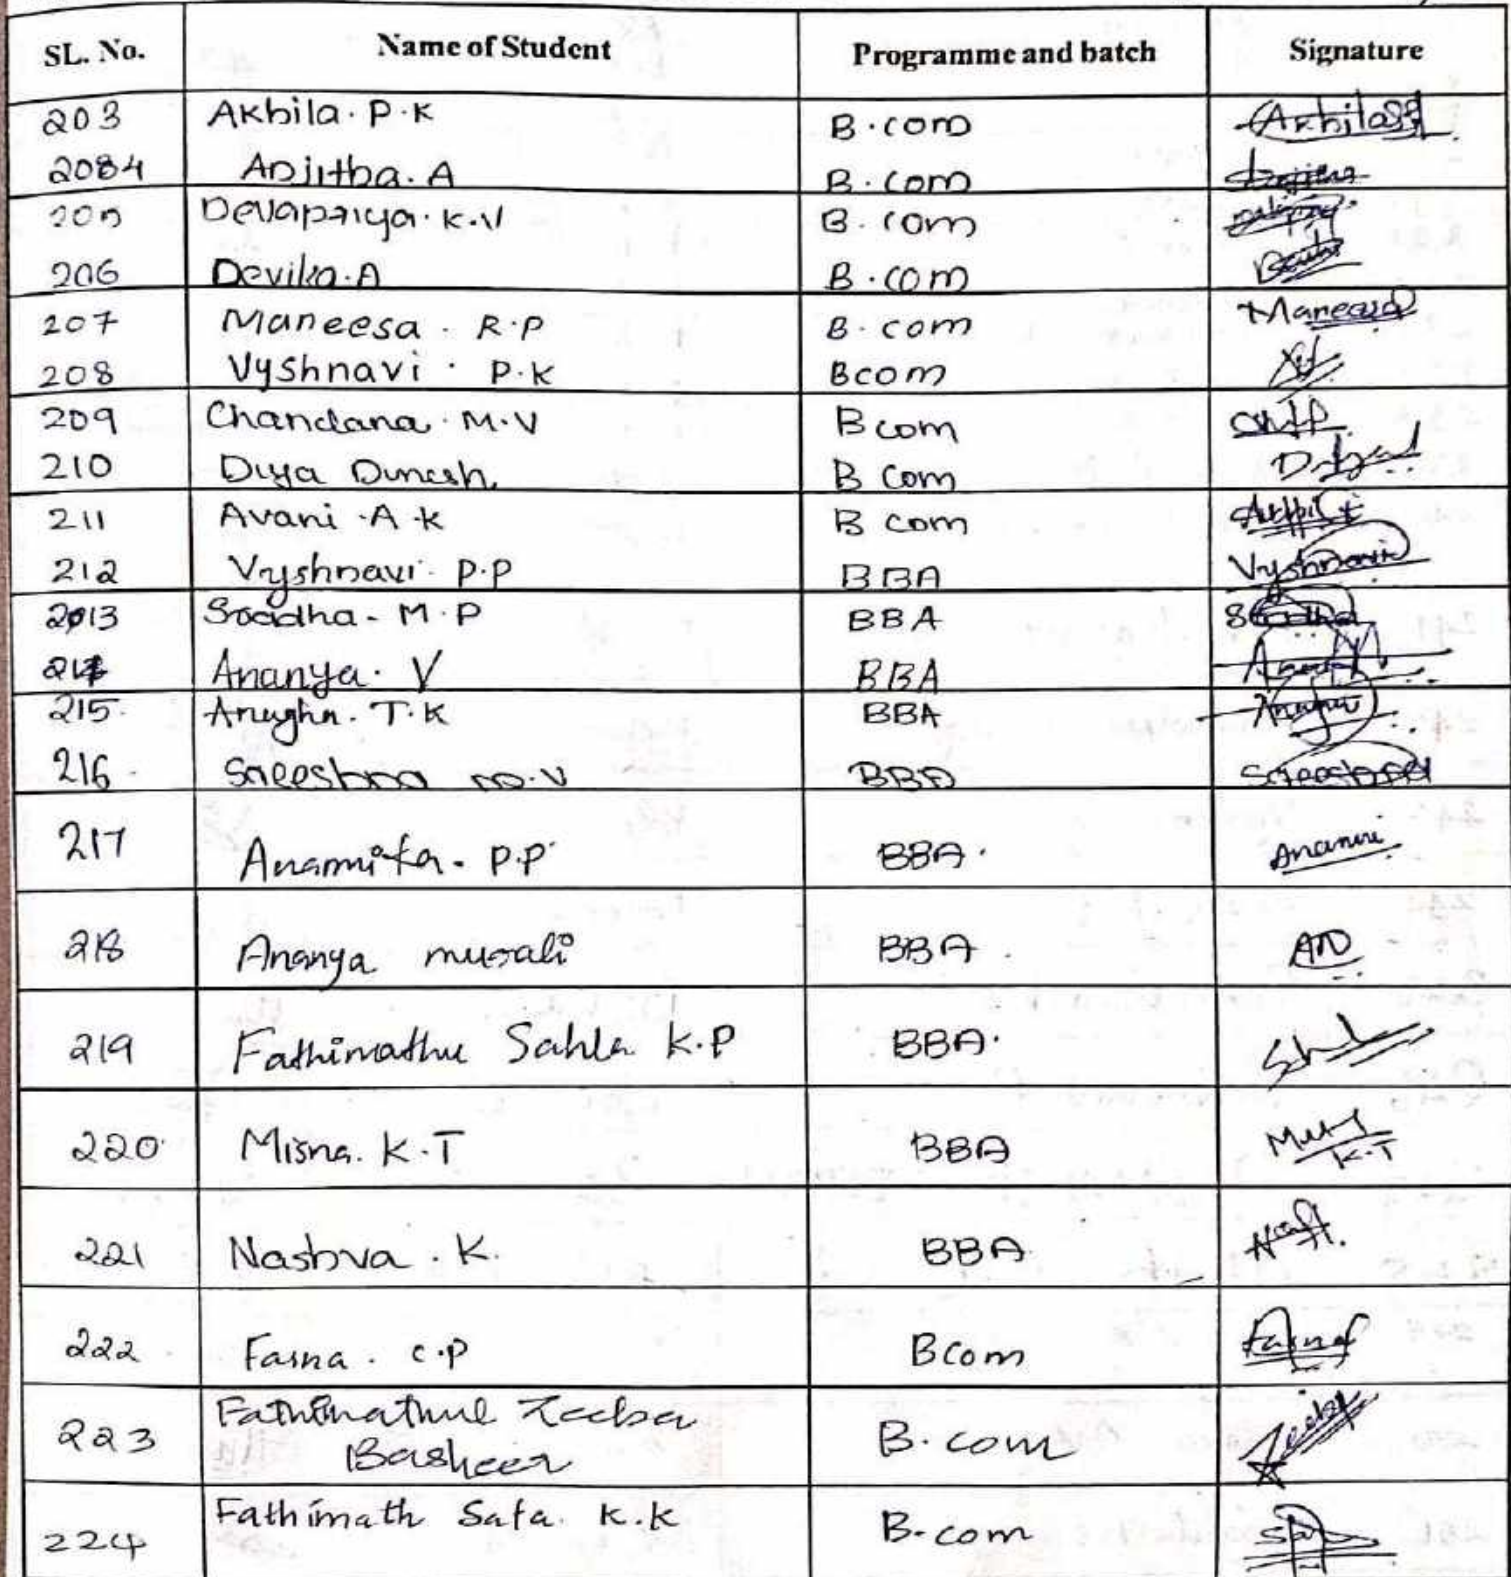 SL. No. Name of Student Programme and batch Signature
203 Akhila. P. K B.com Akhila
2084 Anjitha. A B.com
205 Devapriya. K.V B.com
206 Devika. A B.com
207 Maneesa. R.P B.com Maneesa
208 Vyshnavi. P.K Bcom
209 Chandana. M.V Bcom
210 Diya Dinesh B Com
211 Avani. A. K B com
212 Vyshnavi. P.P BBA Vyshnavi
213 Sradha. M.P BBA
214 Ananya. V BBA
215 Anagha. T.K BBA
216 Sreeshna M.V BBA
217 Anamika. P.P BBA.
218 Ananya murali BBA.
219 Fathimathu Sahla K.P BBA.
220 Misna. K.T BBA
K.T
221 Nashva. K. BBA
222 Fasna. C.P Bcom Fasna
223 Fathimathul Zeeba B.com
Basheer
224 Fathimath Safa. K.K B.com